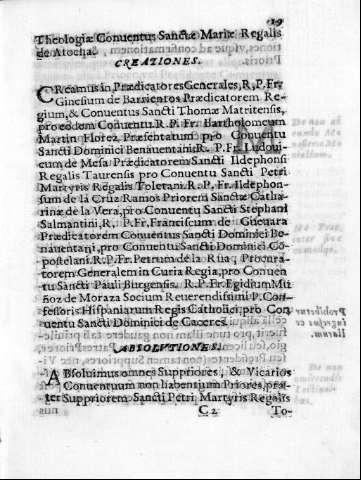 19
Theologiæ Conuentus Sanctæ Mariæ Regalis
de Atocha.
CREATIONES.
CReamus in Prædicatores Generales, R, P. Fr.
Ginesium de Barrientos Prædicatorem Re-
gium, & Conuentus Sancti Thomæ Matritensis,
pro eodem Conuentu. R. P. Fr. Bartholomeum
Martin Florez Præsentatum pro Conuentu
Sancti Dominici Benauentani. R. P. Fr. Ludoui-
cum de Mesa Prædicatorem Sancti Ildephonsi
Regalis Taurensis pro Conuentu Sancti Petri
Martyris Regalis Toletani. R. P. Fr. Ildephon-
sum de la Cruz Ramos Priorem Sanctæ Catha-
rinæ de la Vera, pro Conuentu Sancti Stephani
Salmantini, R, P. Fr. Franciscum de Gueuara
Prædicatorem Conuentus Sancti Dominici Be-
nauentani, pro Conuentu Sancti Dominici Co-
postelani. R. P. Fr. Petrum de la Rua, Procura-
torem Generalem in Curia Regia, pro Conuen
tu Sancti Pauli Burgensis. R. P. Fr. Egidium Mu
ñoz de Moraza Socium Reuerendissimi P. Con-
fessoris Hispaniarum Regis Catholici, pro Con
uentu Sancti Dominici de Caceres.
ABSOLUTIONES.
ABsoluimus omnes Suppriores, & Vicarios
Conuentuum non habentium Priores, præ-
ter Suppriorem Sancti Petri Martyris Regalis
C2 To-